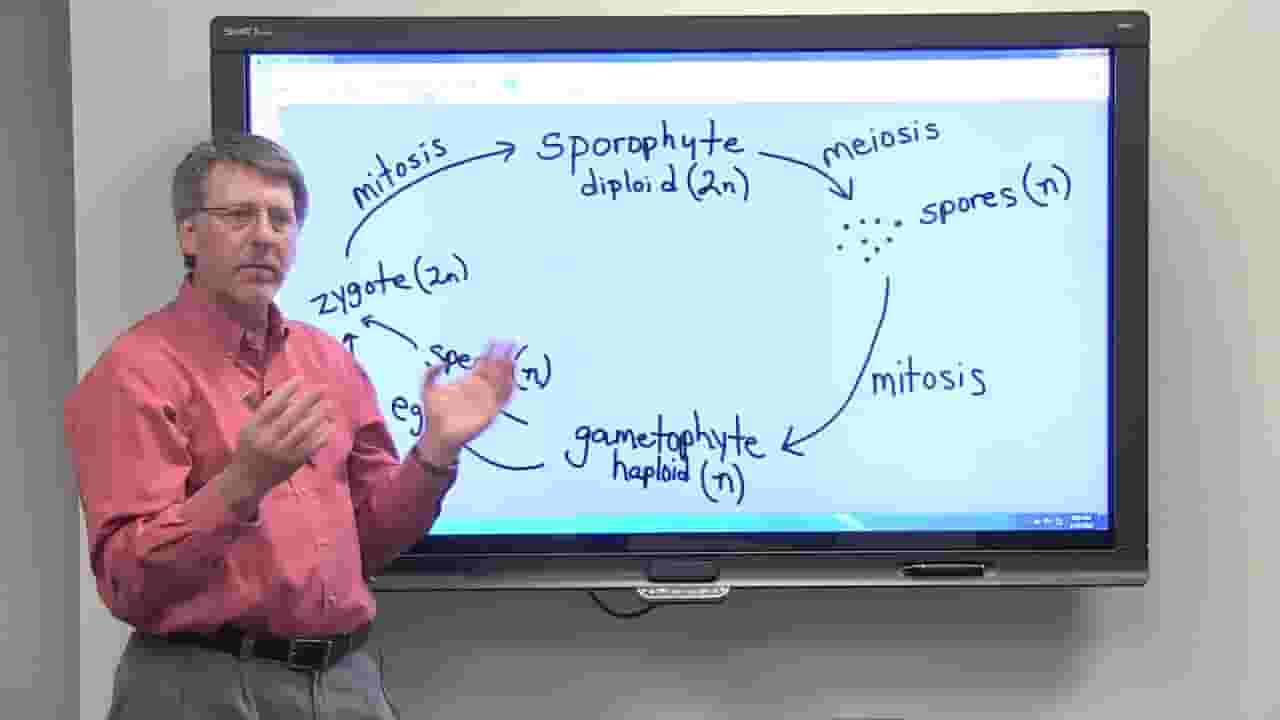 mitosis
Sporophyte
diploid (2n)
meiosis
spores (n)
zygote (2n)
(n)
mitosis
gametophyte
haploid (n)